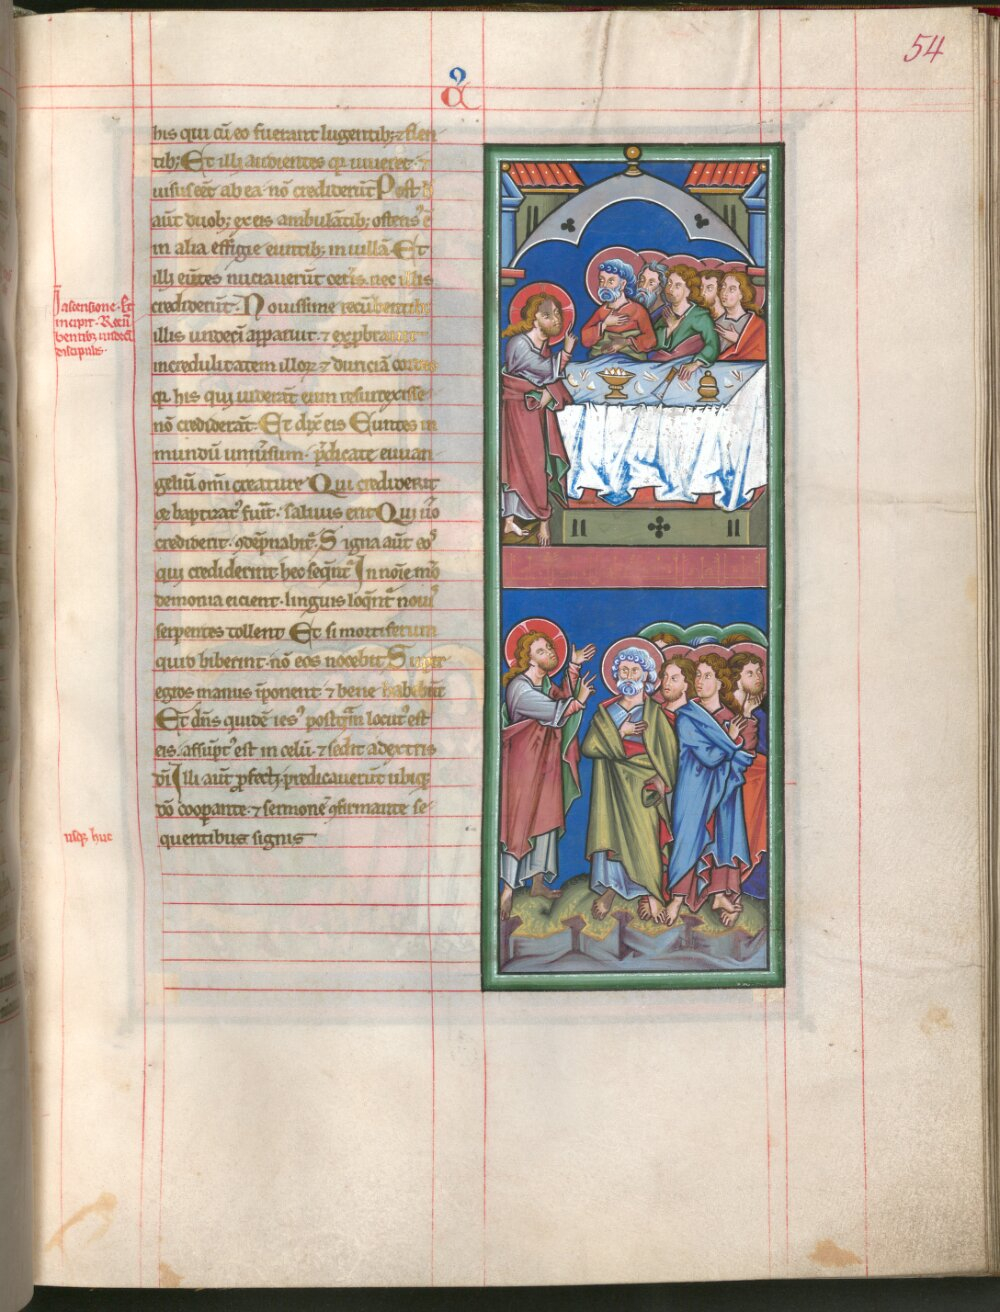 54
a
his qui cū eo fuerant lugentib; ⁊ flen
tib; Et illi audientes qꝛ uiueret ⁊
uisus eēt ab ea nō crediderūt Post
aūt duob; ex eis ambulātib; ostens' ē
in alia effigie euntib; in uillā Et
illi eūtes nūciauerūt cet'is nec illis
crediderūt. Nouissime recūbentib;
illis undeci apparuit. ⁊ exprobrauit
incredulitatem illoꝝ ⁊ duriciā cordis
qꝛ his qui uiderāt eum resurrexisse
nō crediderāt. Et dix̄ eis Euntes in
mundū uniūsum. p̄dicate euuan
geliū omī creature Qui crediderit
⁊ baptizat' fuit. saluus erit Qui ūo
crediderit. ꝯdēpnabit̄. Signa aūt eos
qui crediderint hec seqūt̄ In noīe mō
demonia eicient. linguis loqn̄t̄ nouis
serpentes tollent Et si mortiferum
quid biberint. nō eos nocebit Super
egros manus īponent ⁊ bene habebūt
Et dn̄s quidē ies' postqm̄ locut' est
eis. assūpt' est in celū. ⁊ sedit a dextris
dī Illi aūt p̄fecti. predicauerūt ubiqꝫ
dō coopante. ⁊ sermonē ꝯfirmante se
quentibus signis
In ascensione. Et
incipit. Recū
bentib; undeci
discipulis.
usqꝫ huc